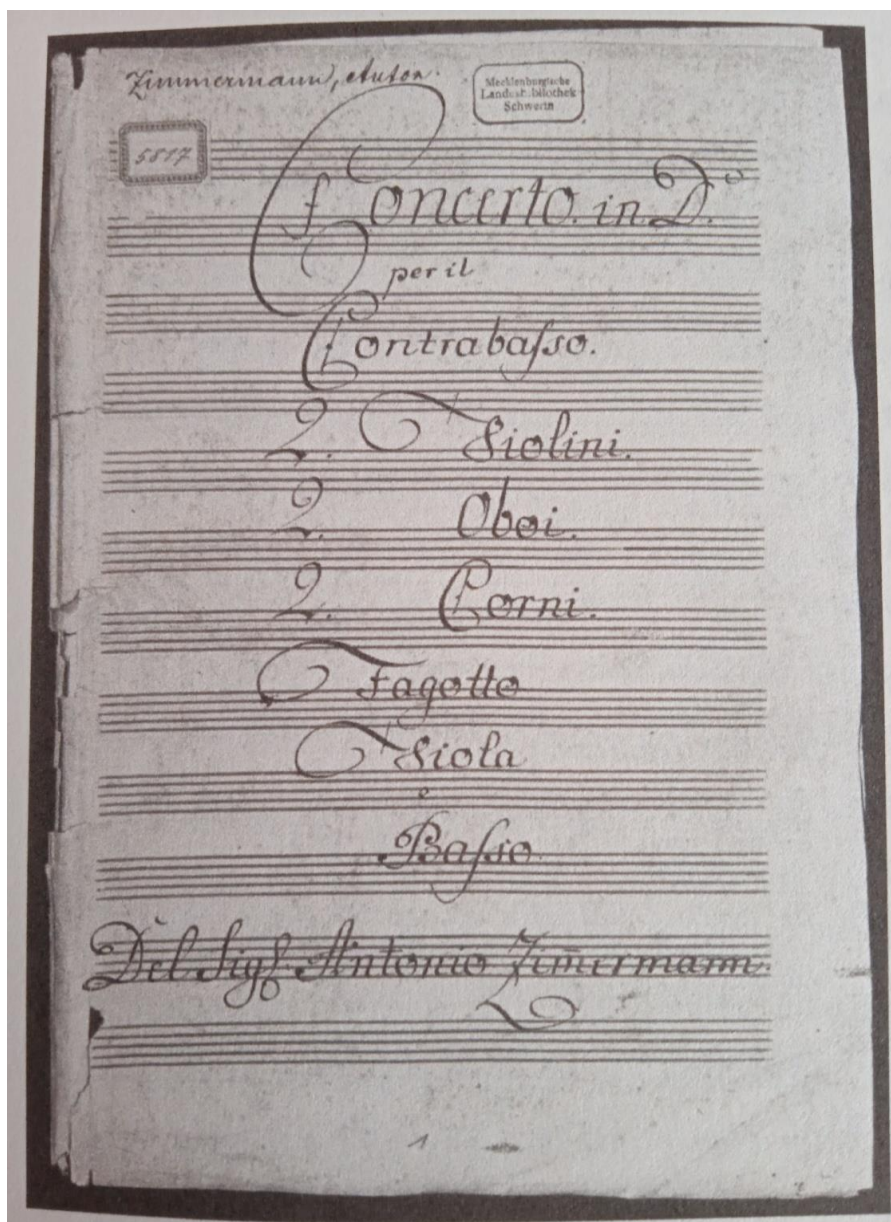 Zimmermann, Anton.
Mecklenburgische
Landesbibliothek
Schwerin
5817
Concerto. in. D.º
per il
Contrabaſso.
2. Violini.
2. Oboi.
2. Corni.
Fagotto
Viola
e
Baſso
Del Sigr. Antonio Zim̄ermann.
1